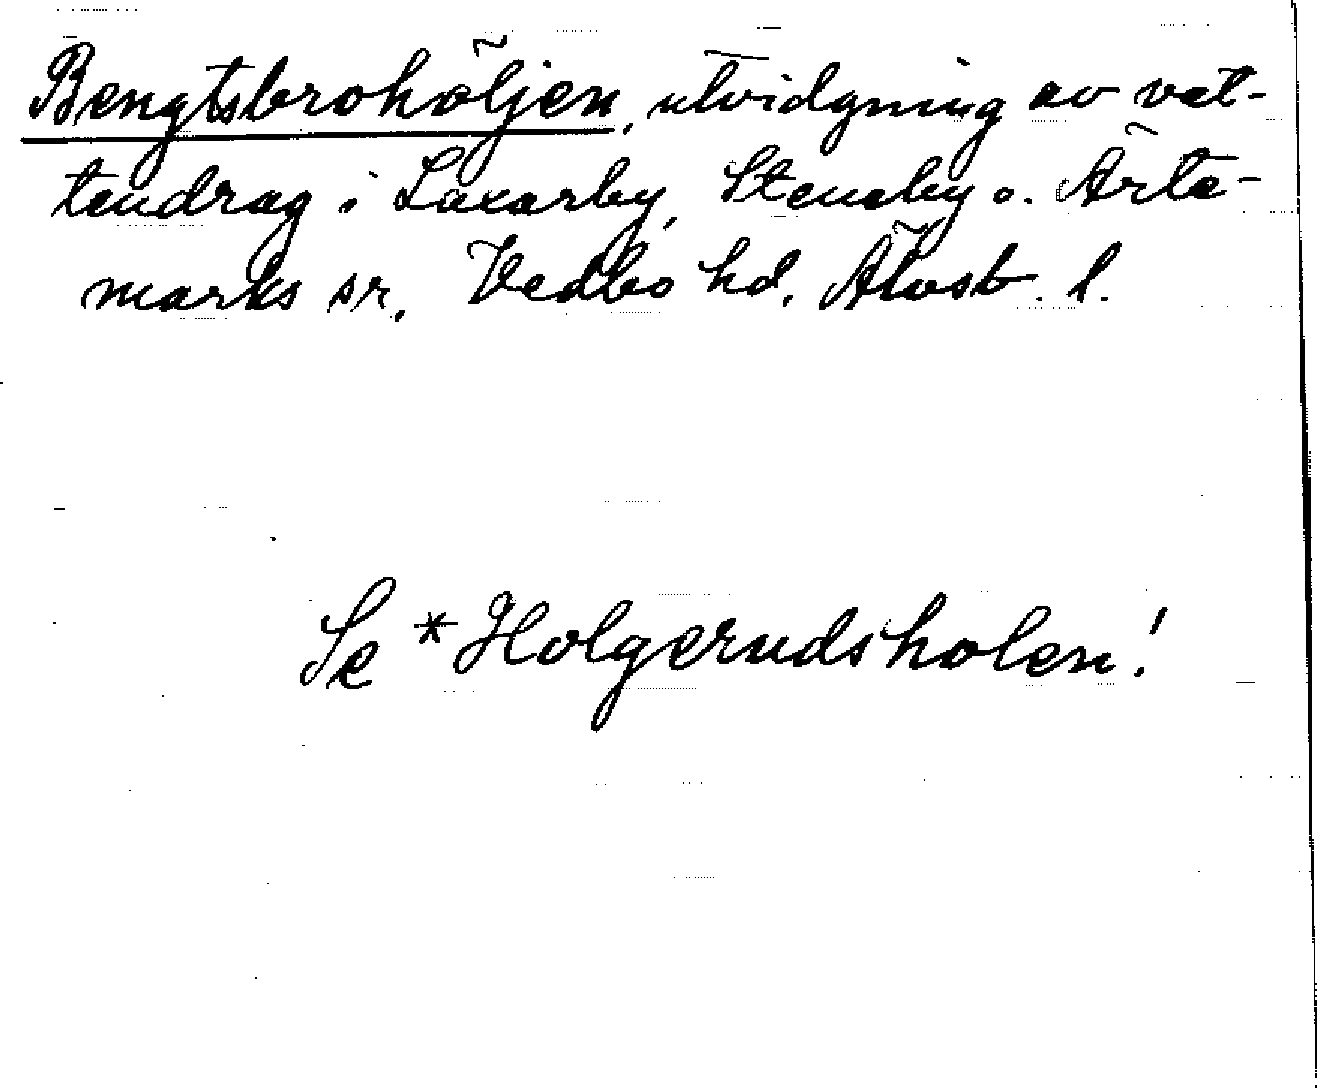 Bengtsbrohöljen, utvidgning av vat-
tendrag i Laxarby, Steneby o. Ärte-
marks sr, Vedbo hd, Älvsb. l.
Se *Holgerudsholen!